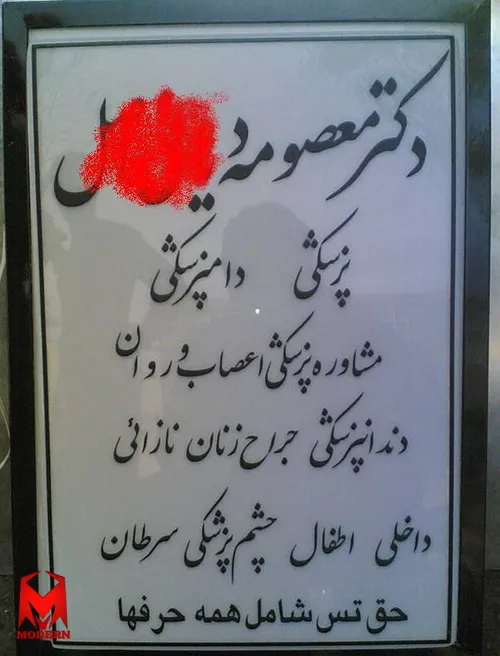 دکتر معصومه
پزشکی دامپزشکی
مشاوره پزشکی اعصاب و روان
دندانپزشکی جراح زنان نازائی
داخلی اطفال چشم پزشکی سرطان
حق تس شامل همه حرفها
MODERN